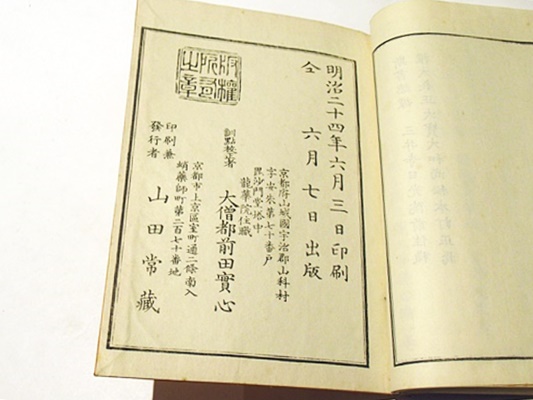 明治二十四年六月三日印刷
仝　六月七日出版
京都府山城國宇治郡山科村
字安朱第七十番戸
毘沙門堂塔中
龍華院住職
訓點校著 大僧都前田實心
京都市上京區室町通二條南入
蛸藥師町第二百七十番地
印刷兼
發行者 山田常藏
版權
所有
之章